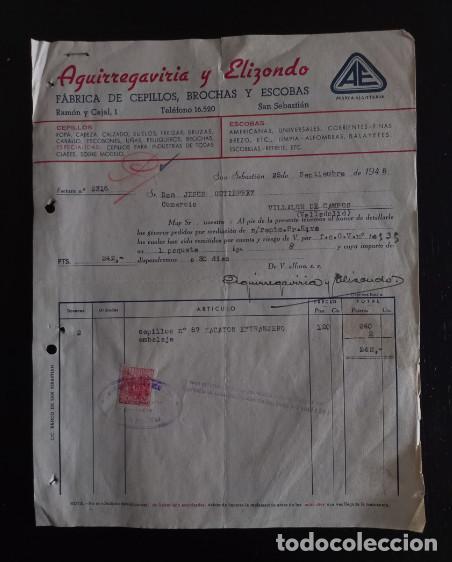 Aguirregaviria y Elizondo
FÁBRICA DE CEPILLOS, BROCHAS Y ESCOBAS
Ramón y Cajal, 1 Teléfono 16.520 San Sebastián
AE
MARCA REGISTRADA
CEPILLOS
ROPA, CABEZA, CALZADO, SUELOS, FREGAR, BRUZAS,
CABALLO, ESCOBONES, UÑAS, PELUQUEROS, BROCHAS,
ESPECIALIDAD: CEPILLOS PARA INDUSTRIAS DE TODAS
CLASES, SOBRE MODELO.
ESCOBAS
AMERICANAS, UNIVERSALES, CORRIENTES-FINAS
BREZO, ETC., LIMPIA-ALFOMBRAS, BALAYETTES,
ESCOBILLAS-RETRETE, ETC.
San Sebastián 28 de Septiembre de 194 8.
Factura nº 2316 Sr. Don JESUS GUTIERREZ
Comercio VILLALON DE CAMPOS
(Valladolid)
Muy Sr. nuestro: Al pie de la presente tenemos el honor de detallarle
los géneros pedidos por mediación de
los cuales han sido remitidos por cuenta y riesgo de V. por
en 1 paquete kgs. 8 y cuyo importe de
PTS. 242,- dispondremos a 30 días
De V. affmos. s. s.
Aguirregaviria y Elizondo
ARTICULO PRECIO TOTAL
Pts. Cts. Pesetas Cts.
2 cepillos nº 87 ZACATON EXTRANJERO 120 240
embalaje 2
242,-
C/C. BANCO DE SAN SEBASTIAN
todocoleccion.net